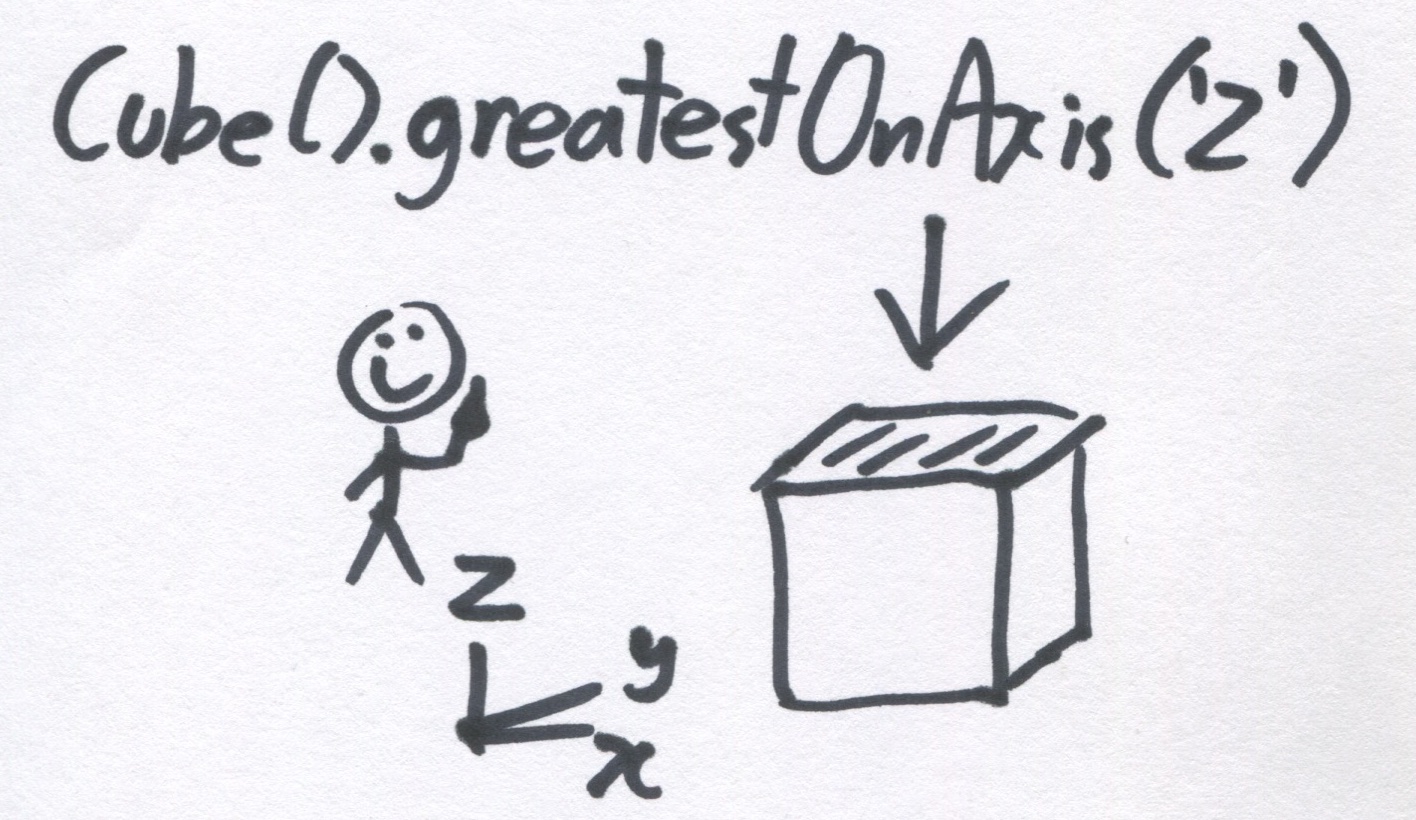 Cube().greatestOnAxis('Z')
Z
y
x